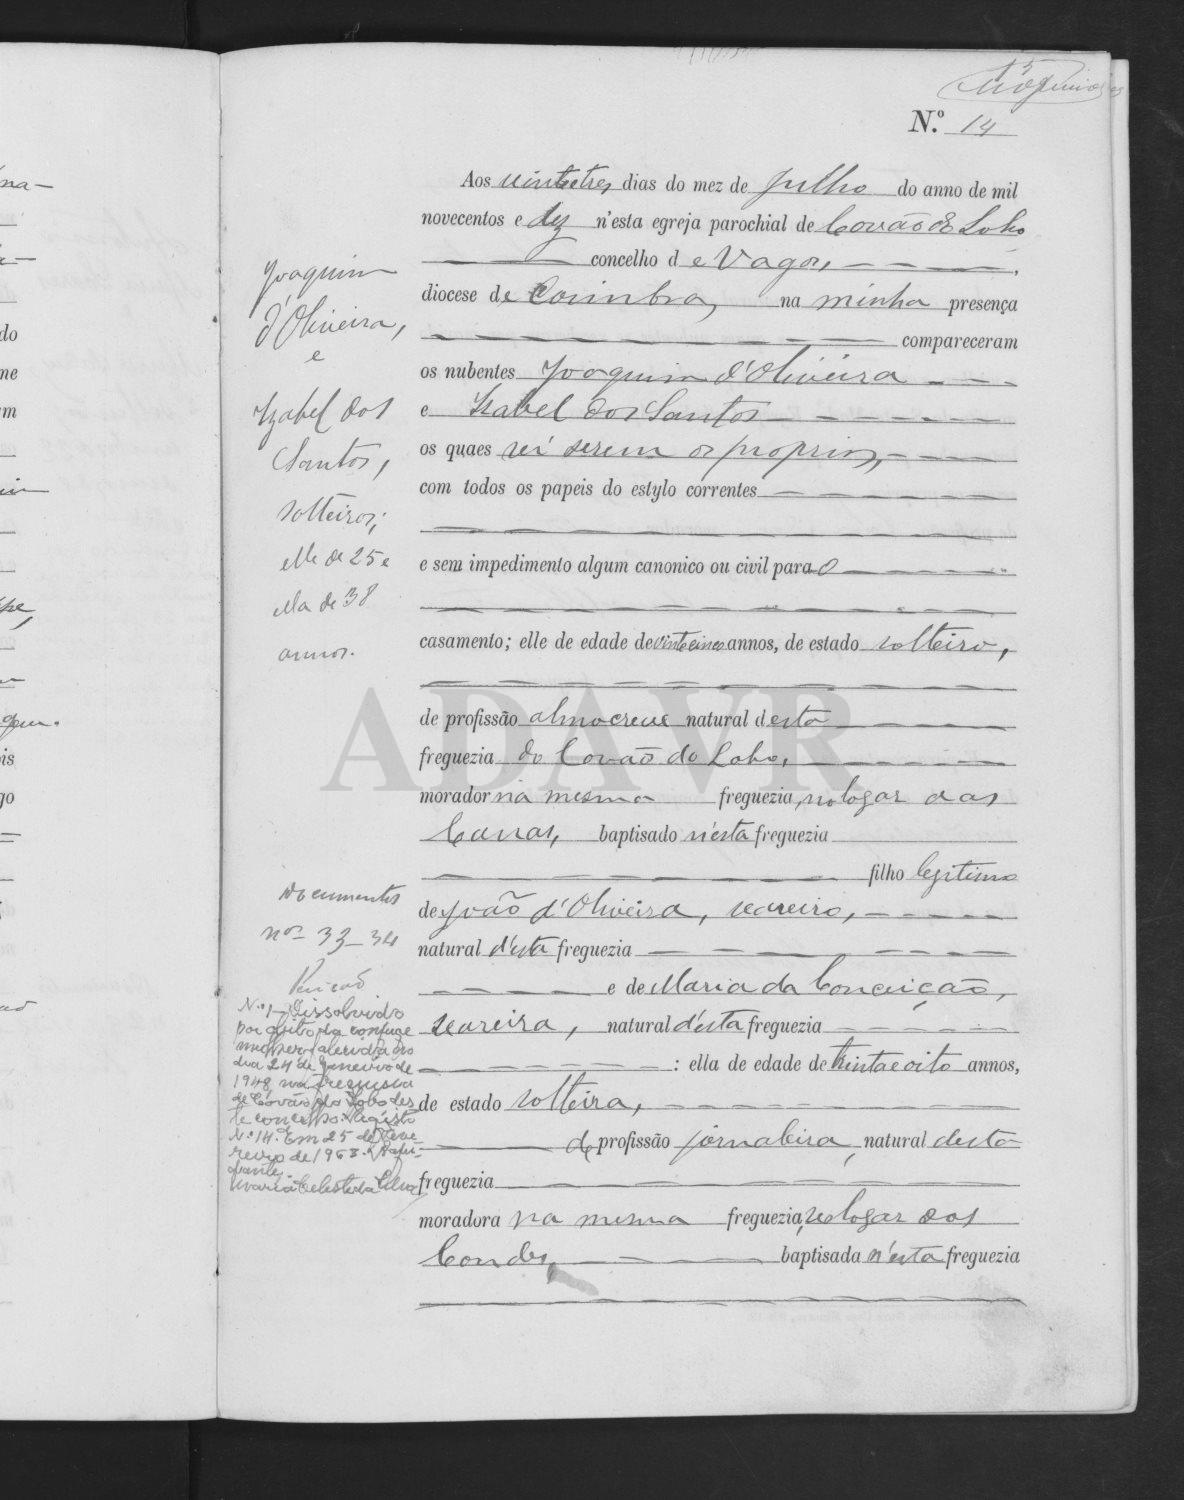 15
N.º 14
Aos vinte tres dias do mez de Julho do anno de mil
novecentos e dez n'esta egreja parochial de Covão do Lobo
concelho de Vagos,
diocese de Coimbra, na minha presença
compareceram
os nubentes Joaquim d'Oliveira
e Izabel dos Santos
os quaes sei serem os proprios,
com todos os papeis do estylo correntes
e sem impedimento algum canonico ou civil para o
casamento; elle de edade de vinte cinco annos, de estado solteiro,
de profissão almocreve natural desta
freguezia do Covão do Lobo,
morador na mesma freguezia, no logar das
baptisado n'esta freguezia
filho legitimo
de João d'Oliveira, seareiro,
natural d'esta freguezia
e de Maria da Conceição,
seareira, natural d'esta freguezia
: ella de edade de trinta e oito annos,
de estado solteira,
de profissão jornaleira, natural desta
freguezia
moradora na mesma freguezia, no logar dos
Condes, baptisada n'esta freguezia
Joaquim
d'Oliveira,
e
Izabel dos
Santos,
solteiros;
elle de 25 e
ella de 38
annos.
Documentos
nos 33-34
N.º 1 - Dissolvido
por obito da conjuge
mulher falecida no
dia 24 de Janeiro de
1948 na freguesia
de Covão do Lobo des
te concelho. Registo
N.º 14. Em 25 de Feve-
reiro de 1963. O Aju-
dante,
Maria Celeste da Silva
ADAVR